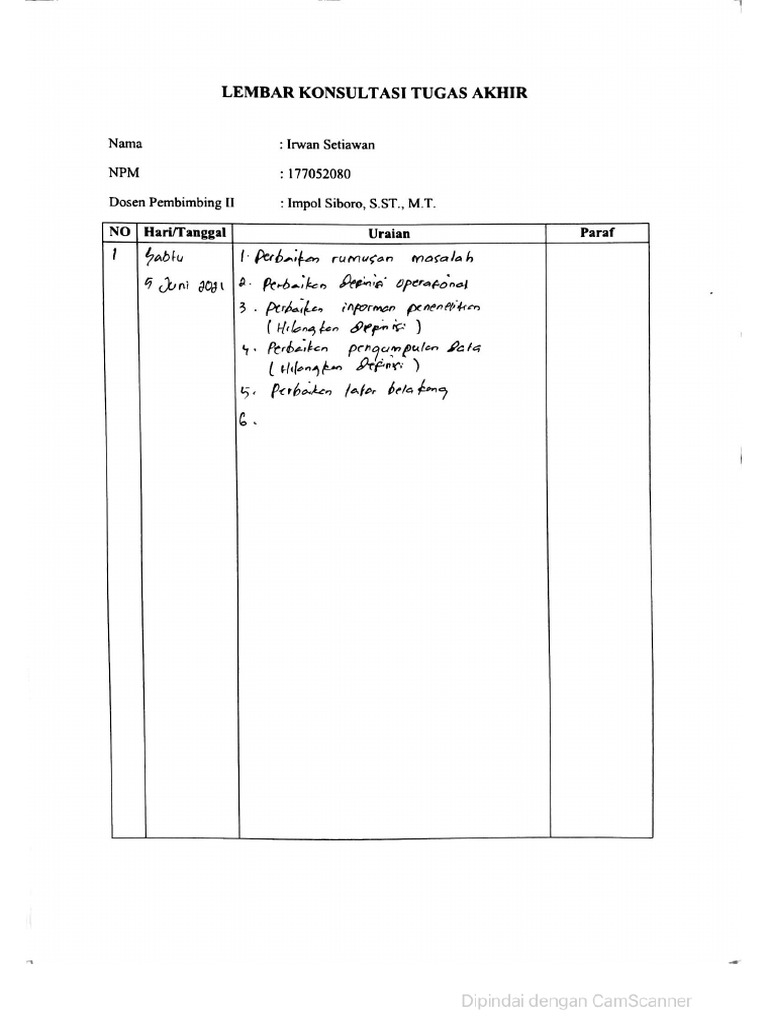 LEMBAR KONSULTASI TUGAS AKHIR
Nama : Irwan Setiawan
NPM : 177052080
Dosen Pembimbing II : Impol Siboro, S.ST., M.T.
NO Hari/Tanggal Uraian Paraf
1 Sabtu 1. Perbaikan rumusan masalah
5 Juni 2021 2. Perbaikan Definisi operasional
3. Perbaikan informan penenelitian
(Hilangkan Definisi)
4. Perbaikan pengumpulan Data
(Hilangkan Definisi)
5. Perbaikan latar belakang
6.
Dipindai dengan CamScanner